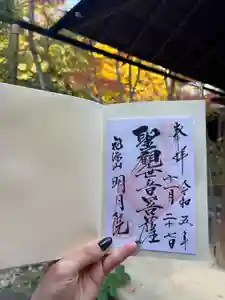 奉拝
令和五年
十一月二十七日
聖観世音菩薩
福源山
明月院